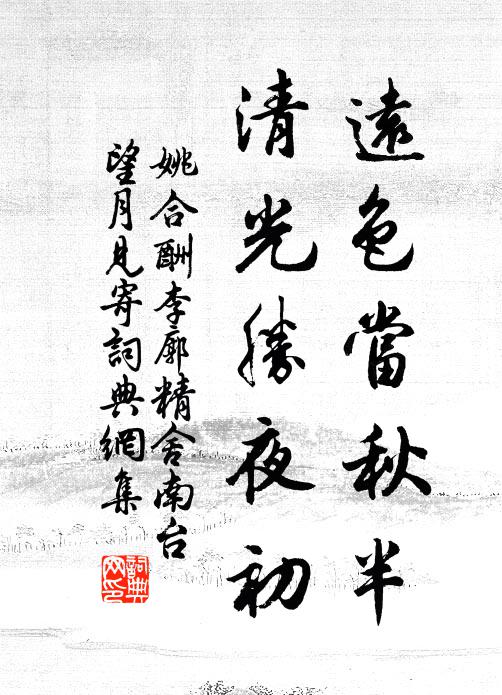 遠色當秋半
清光勝夜初
姚合酬李廓精舍南台
望月見寄詞典網集
詞典
网印